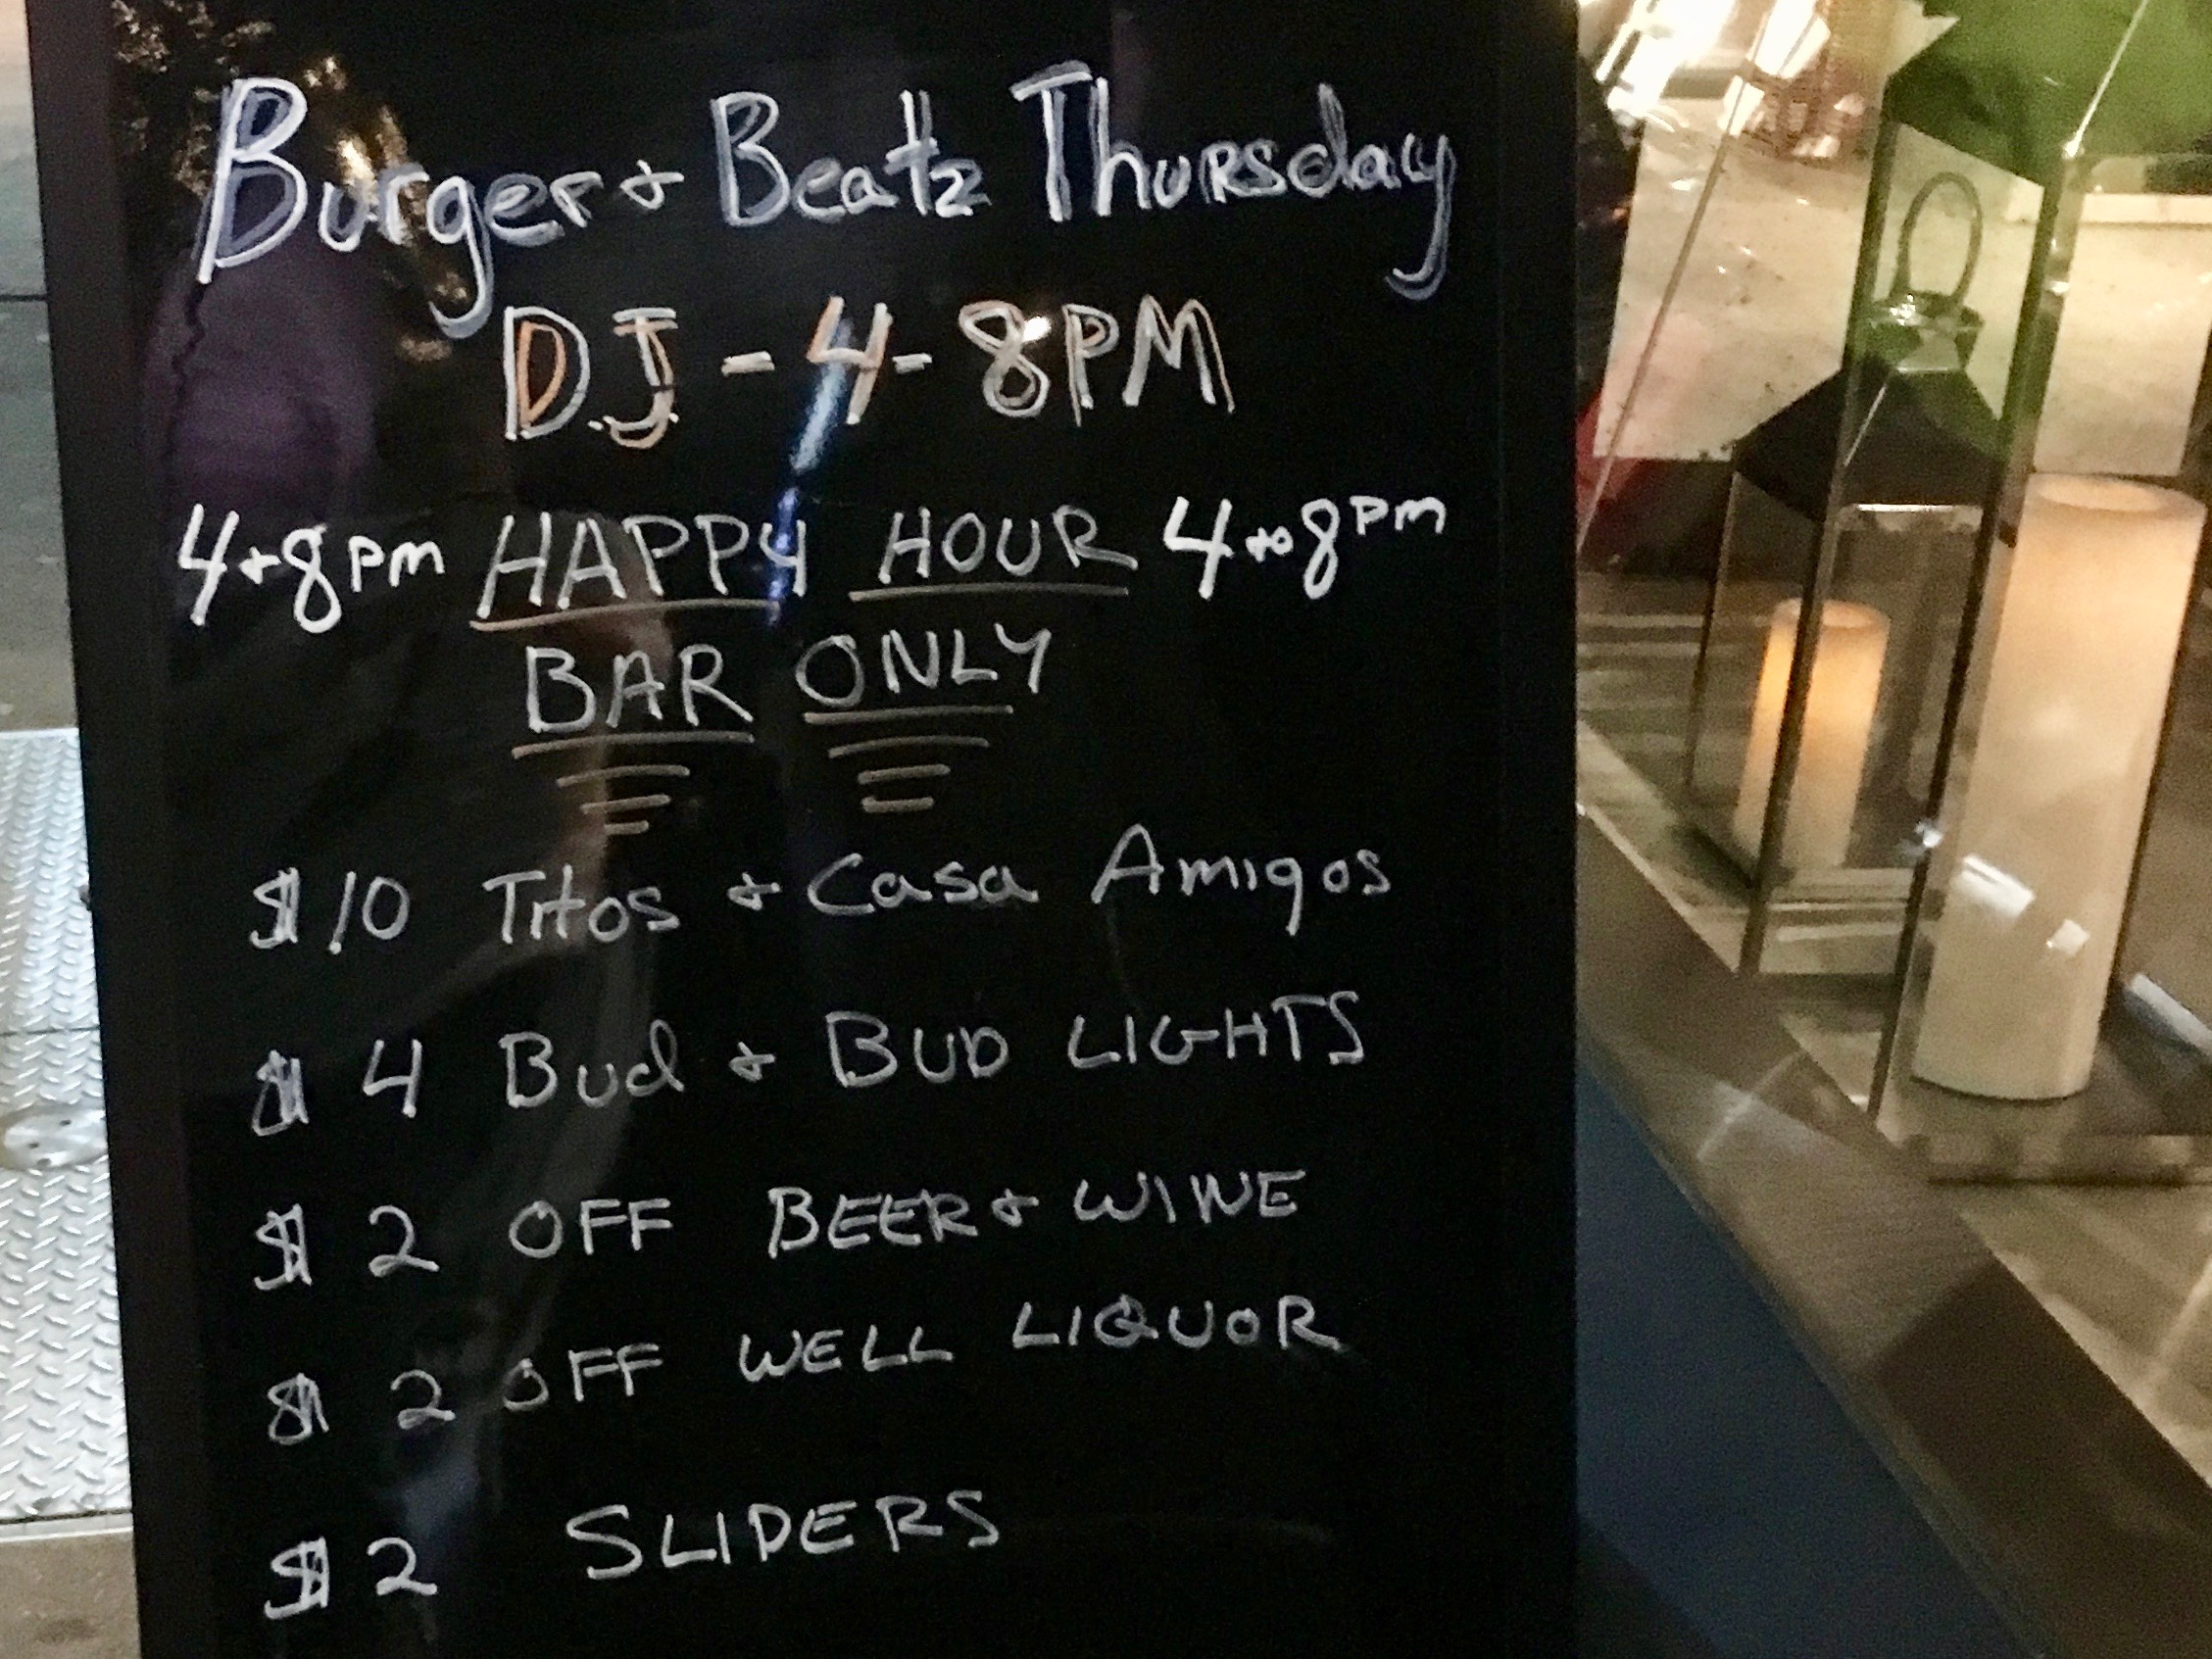 Burger & Beatz Thursday
DJ - 4 - 8PM
4 to 8pm HAPPY HOUR 4 to 8pm
BAR ONLY
$10 Titos & Casa Amigos
$4 Bud & BUD LIGHTS
$2 OFF BEER & WINE
$2 OFF WELL LIQUOR
$2 SLIDERS